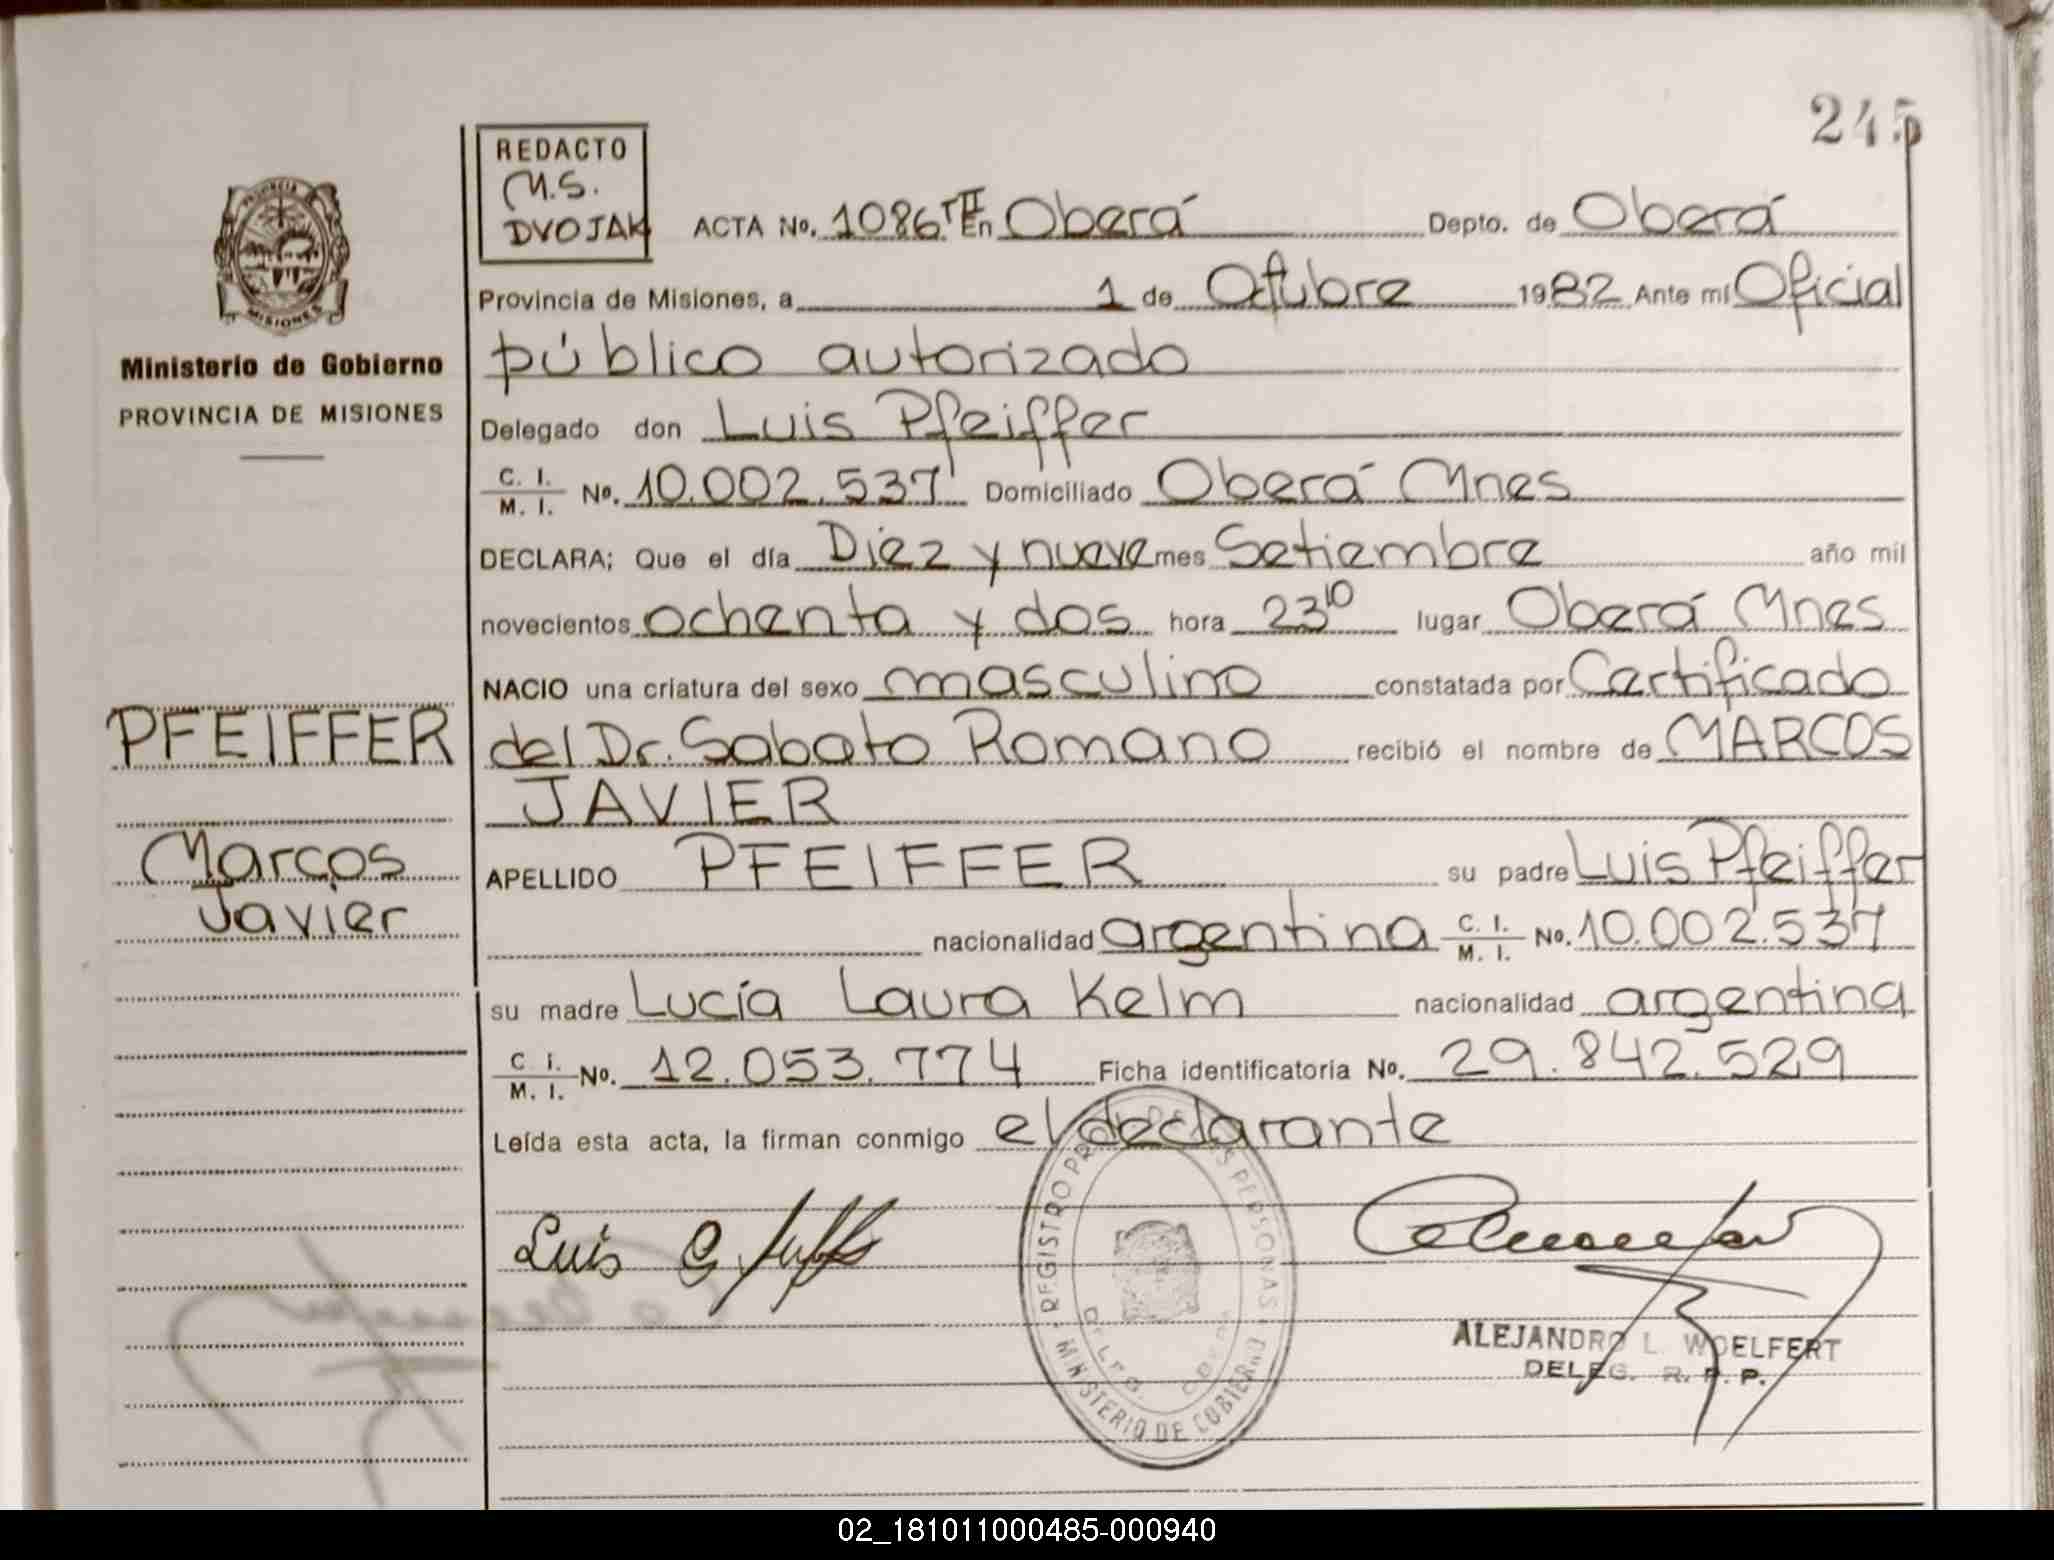 245
REDACTO
M.S.
DVOJAK
ACTA No. 1086 TII En Oberá Depto. de Oberá
Provincia de Misiones, a 1 de Octubre 1982 Ante mí Oficial
público autorizado
Ministerio de Gobierno
PROVINCIA DE MISIONES
Delegado don Luis Pfeiffer
C. I.
M. I. No. 10.002.537 Domiciliado Oberá Mnes
DECLARA; Que el día Diez y nueve mes Setiembre año mil
novecientos ochenta y dos hora 23 10 lugar Oberá Mnes
NACIO una criatura del sexo masculino constatada por Certificado
del Dr. Sabato Romano recibió el nombre de MARCOS
JAVIER
PFEIFFER
Marcos
Javier
APELLIDO PFEIFFER su padre Luis Pfeiffer
nacionalidad argentina C. I.
M. I. No. 10.002.537
su madre Lucía Laura Kelm nacionalidad argentina
C. I.
M. I. No. 12.053.774 Ficha identificatoria No. 29.842.529
Leída esta acta, la firman conmigo el declarante
Luis
REGISTRO PERSONAS
MINISTERIO DE GOBIERNO
ALEJANDRO L. WOELFERT
DELEG. R. P. P.
02_181011000485-000940